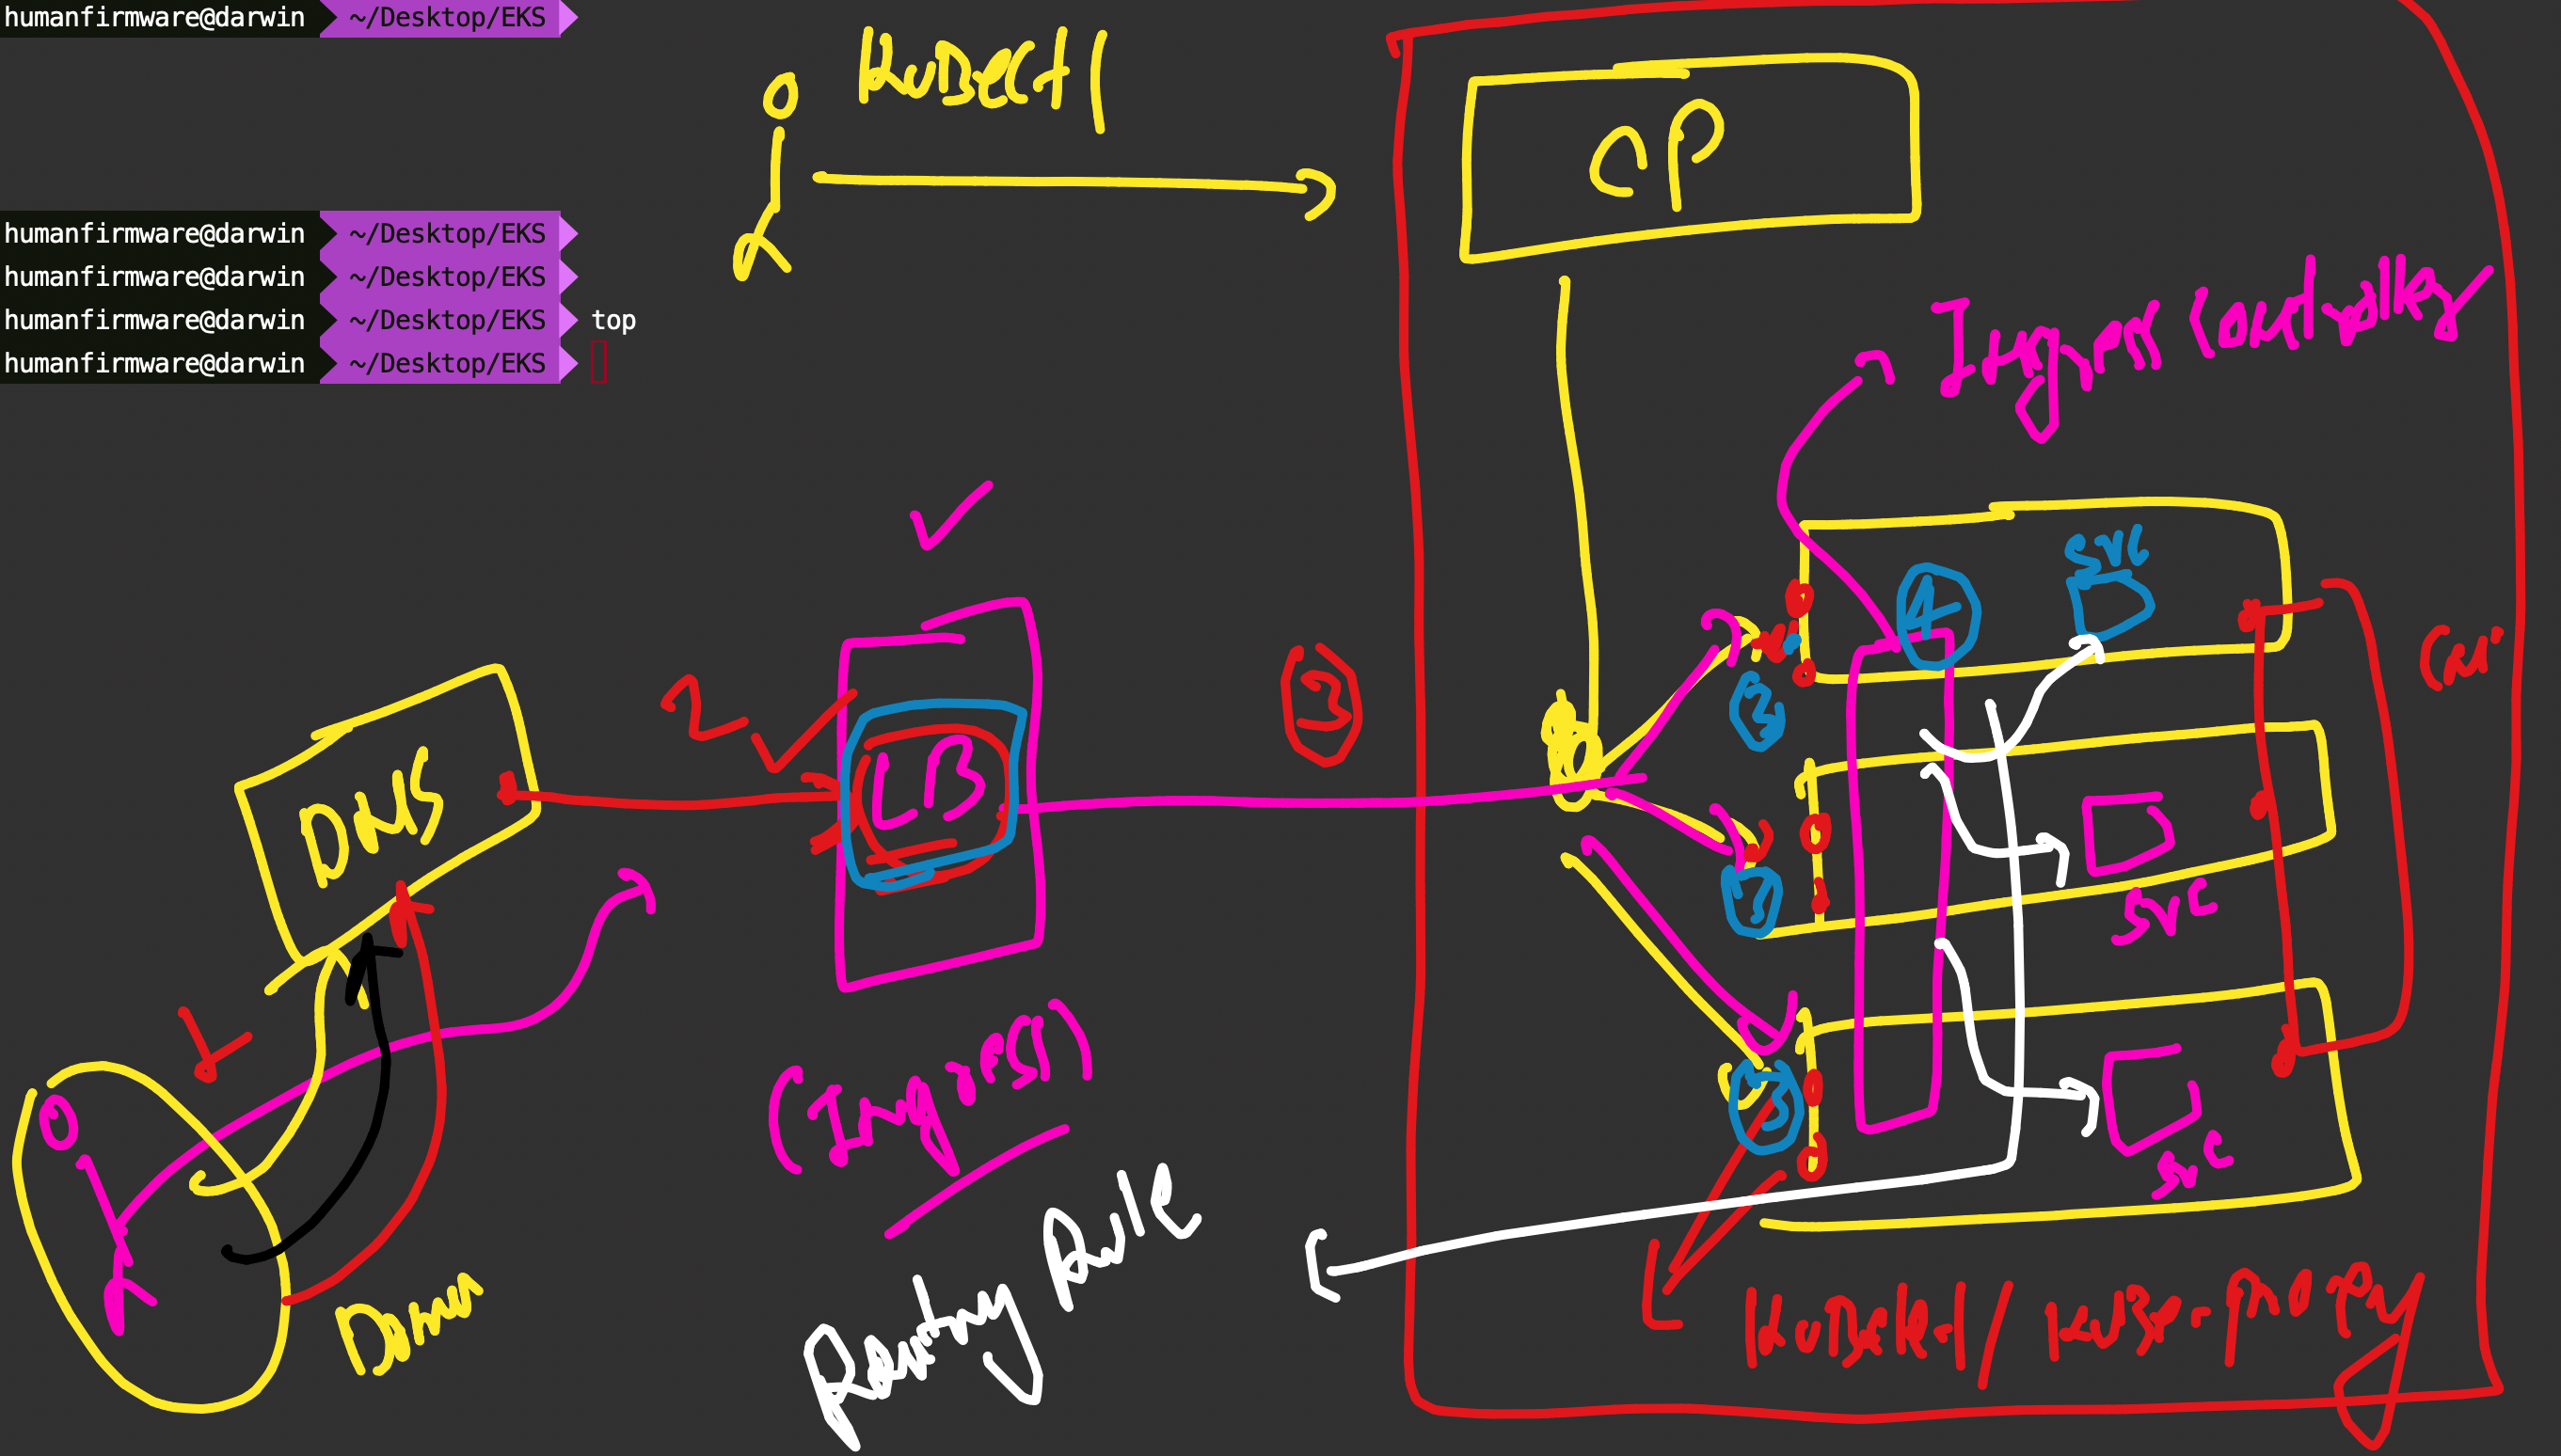 humanfirmware@darwin ~/Desktop/EKS
humanfirmware@darwin ~/Desktop/EKS
humanfirmware@darwin ~/Desktop/EKS
humanfirmware@darwin ~/Desktop/EKS top
humanfirmware@darwin ~/Desktop/EKS
KuBectl
CP
Ingress Controller
4
SVC
3
3
2
LB
DNS
SVC
1
3
SVC
(Ingress)
Routing Rule
KuBelet/ KuBe-proxy